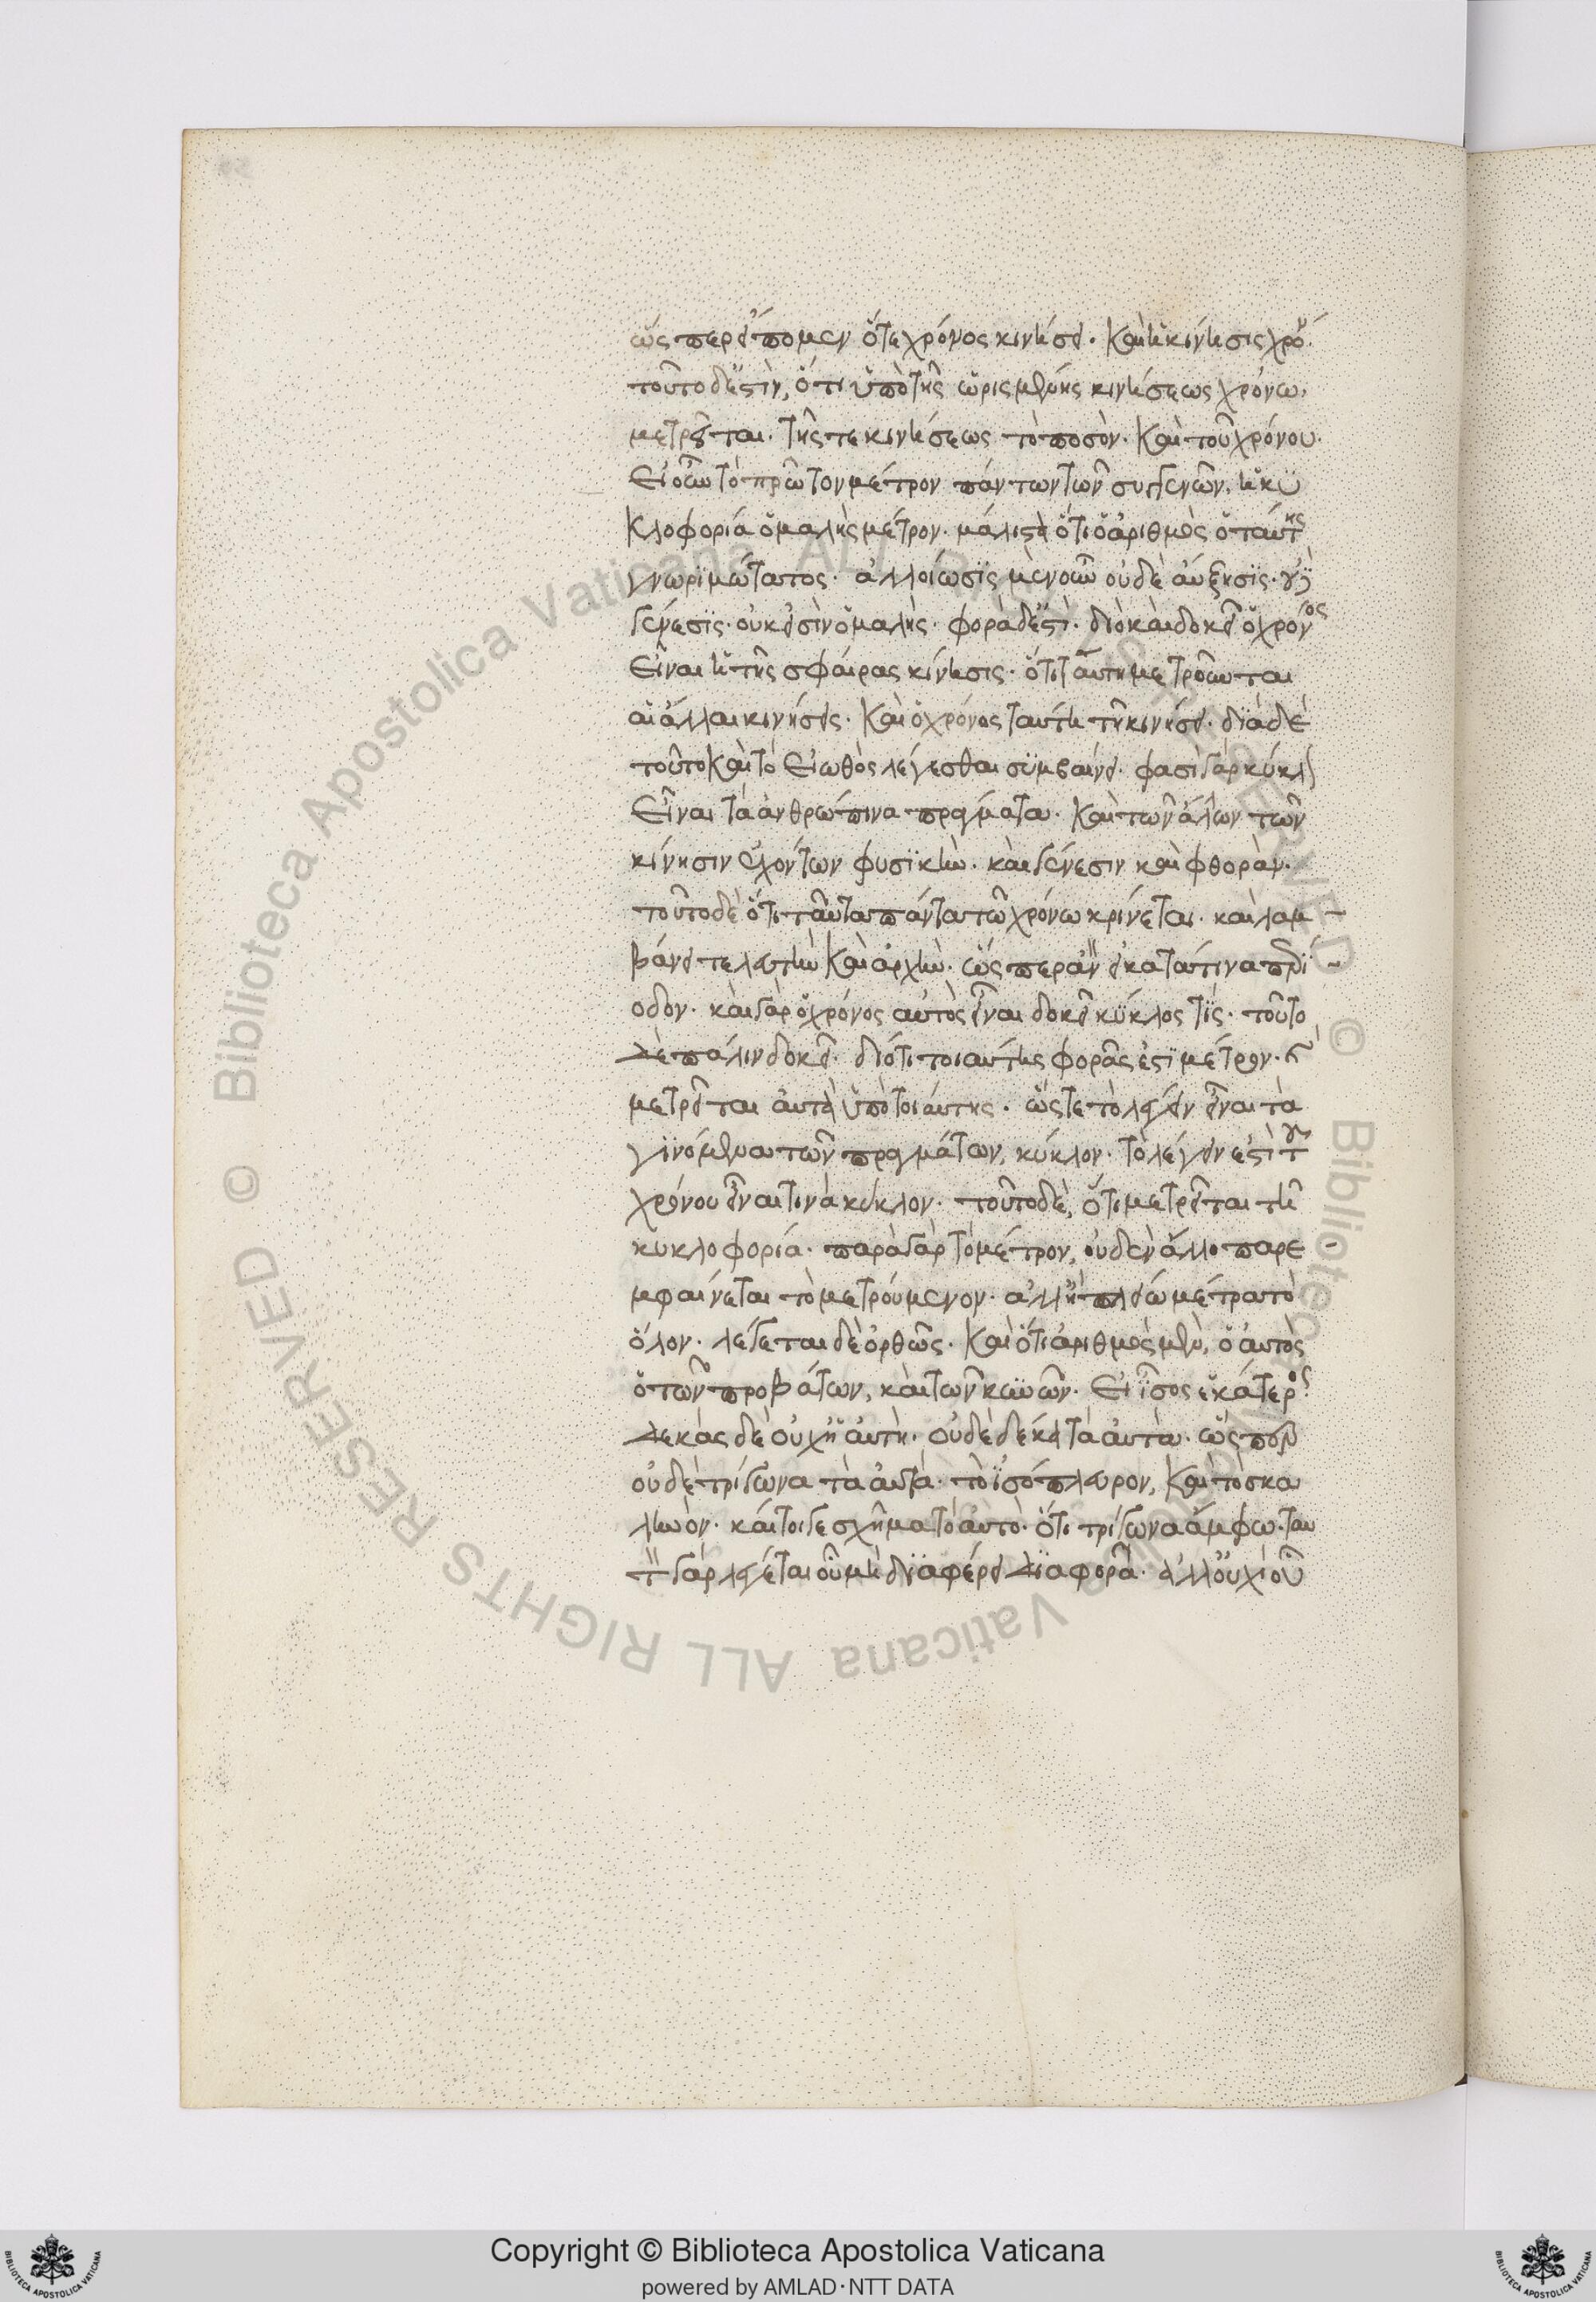 ὥς περ εἴπομεν ὅτε χρόνος κινήσει. καὶ ἡ κίνησις χρό.
τοῦτο δέ ἐστὶν, ὅτι ὑπὸ τῆς ὡρισμένης κινήσεως χρόνω,
μετρεῖται. τῆς τε κινήσεως τὸ ποσὸν. καὶ τοῦ χρόνου.
Εἰ οὖν τὸ πρῶτον μέτρον πάντων τῶν συγγενῶν, ἡ κυ
κλοφορία ὁμαλὴς μέτρον. μάλιστα ὅτι ὁ ἀριθμὸς ὁ ταύτης
γνωριμώτατος. ἀλλοίωσις μὲν οὖν οὐδὲ αὔξησις. οὐδὲ
γένεσις. οὐκ εἰσὶν ὁμαλὴς. φορὰ δέ ἐστὶ. διὸ καὶ δοκεῖ ὁ χρόνος
Εἶναι ἡ τῆς σφαίρας κίνησις. ὅτι ταύτη μετροῦνται
αἱ ἄλλαι κινήσεις. καὶ ὁ χρόνος ταύτη τῇ κινήσει. διὰ δὲ
τοῦτο καὶ τὸ Εἰωθὸς λέγεσθαι συμβαίνει. φασὶ γὰρ κύκλον
Εἶναι τὰ ἀνθρώπινα πράγματα. καὶ τῶν ἄλλων τῶν
κίνησιν ἐχόντων φυσικὴν. καὶ γένεσιν καὶ φθορὰν.
τοῦτο δὲ ὅτι ταῦτα πάντα τῶ χρόνω κρίνεται. καὶ λαμ-
βάνει τελευτὴν καὶ ἀρχὴν. ὥς περ ἂν εἰ κατά τινα περί-
οδον. καὶ γὰρ ὁ χρόνος αὐτὸς εἶναι δοκεῖ κύκλος τίς. τοῦτο
δὲ πάλιν δοκεῖ. διότι τοιαύτης φορᾶς ἐστὶ μέτρον. καὶ
μετρεῖται αὐτὸ ὑπὸ τοιαύτης. ὥς τε τὸ λέγειν εἶναι τὰ
γινόμενα τῶν πραγμάτων, κύκλον. τὸ λέγειν ἐστὶ τοῦ
χρόνου εἶναι τινὰ κύκλον. τοῦτο δὲ, ὅτι μετρεῖται τῆ
κυκλοφορία. παρὰ γὰρ τὸ μέτρον, οὐδὲν ἄλλο παρε-
μφαίνεται τὸ μετρούμενον. ἀλλ' ἢ πλείω μέτρα τὸ
ὅλον. λέγεται δὲ ὀρθῶς. καὶ ὅτι ἀριθμὸς μὲν, ὁ αὐτὸς
ὁ τῶν προβάτων, καὶ τῶν κυνῶν. Εἰ ἴσος ἑκάτερος
δεκὰς δὲ οὐχ ἡ αὐτὴ. οὐδὲ δέκα τὰ αὐτὰ. ὥς περ
οὐδὲ τρίγωνα τὰ αὐτὰ. τὸ ἰσόπλευρον, καὶ τὸ σκα
ληνὸν. καί τοι γε σχῆμα τὸ αὐτὸ. ὅτι τρίγωνα ἄμφω. ταυ
τὸ γὰρ λέγεται οὗ μὴ διαφέρει διαφορᾶ. ἀλλ' οὐχὶ οὗ
Copyright © Biblioteca Apostolica Vaticana
powered by AMLAD·NTT DATA